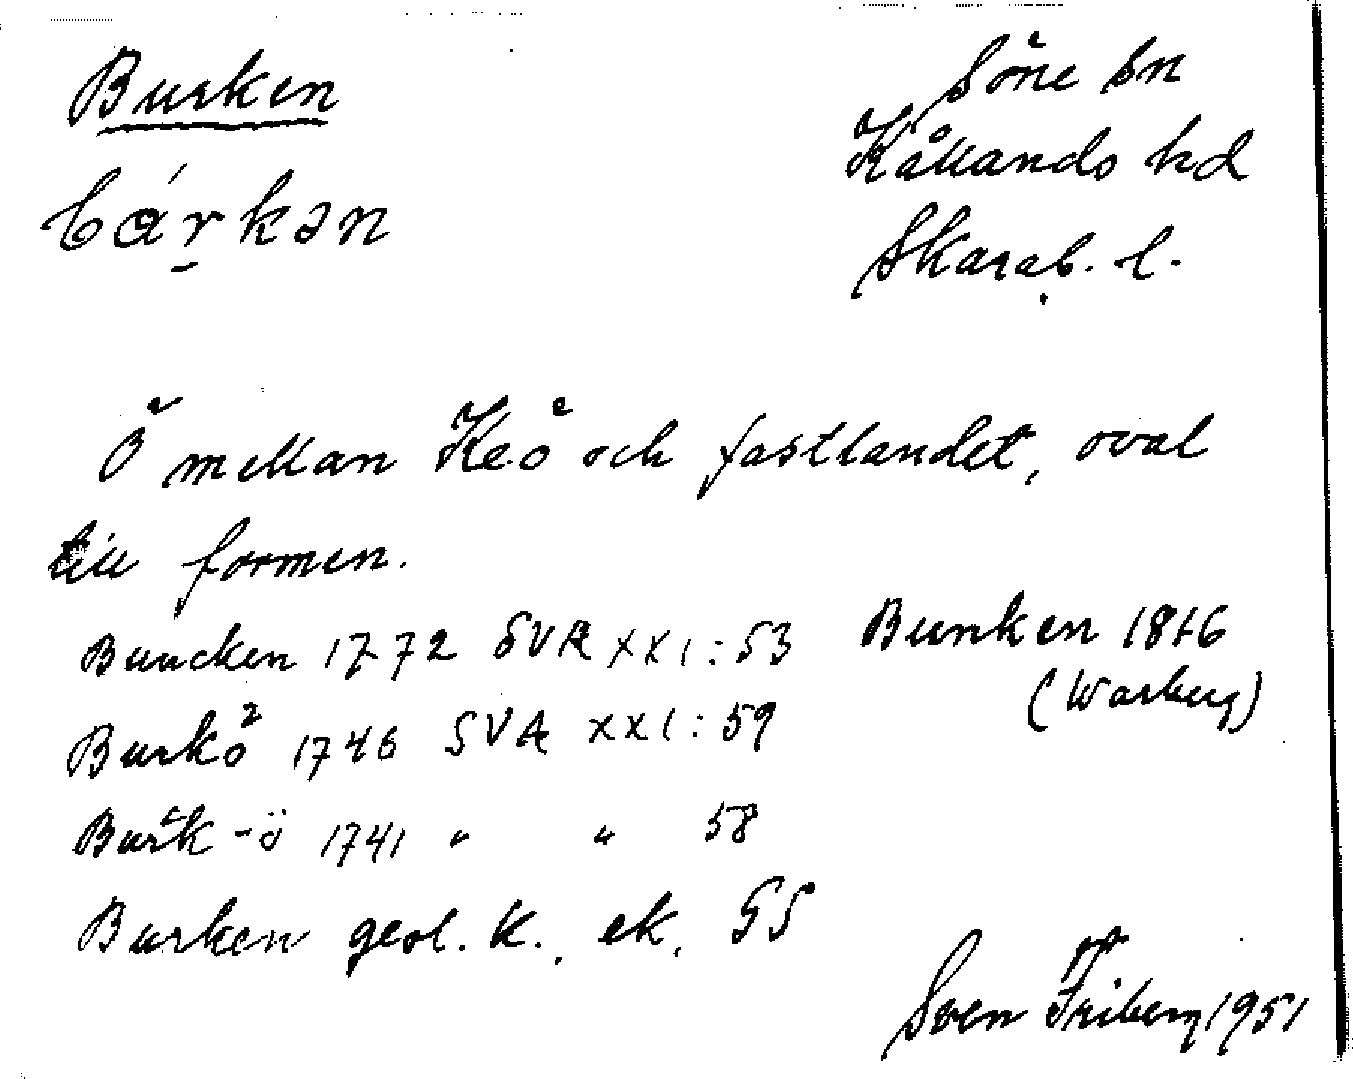 Burken
Söne sn
Kållands hd
bárkən
Skarab. l.
Ö mellan Keö och fastlandet, oval
till formen.
Buncken 1772 SVR XXI:53
Bunken 1816
(Warberg)
Burkö 1746 SVA XXI:59
Burk-ö 1741 " " 58
Burken geol. k., ek. 55
Sven Friberg 1951